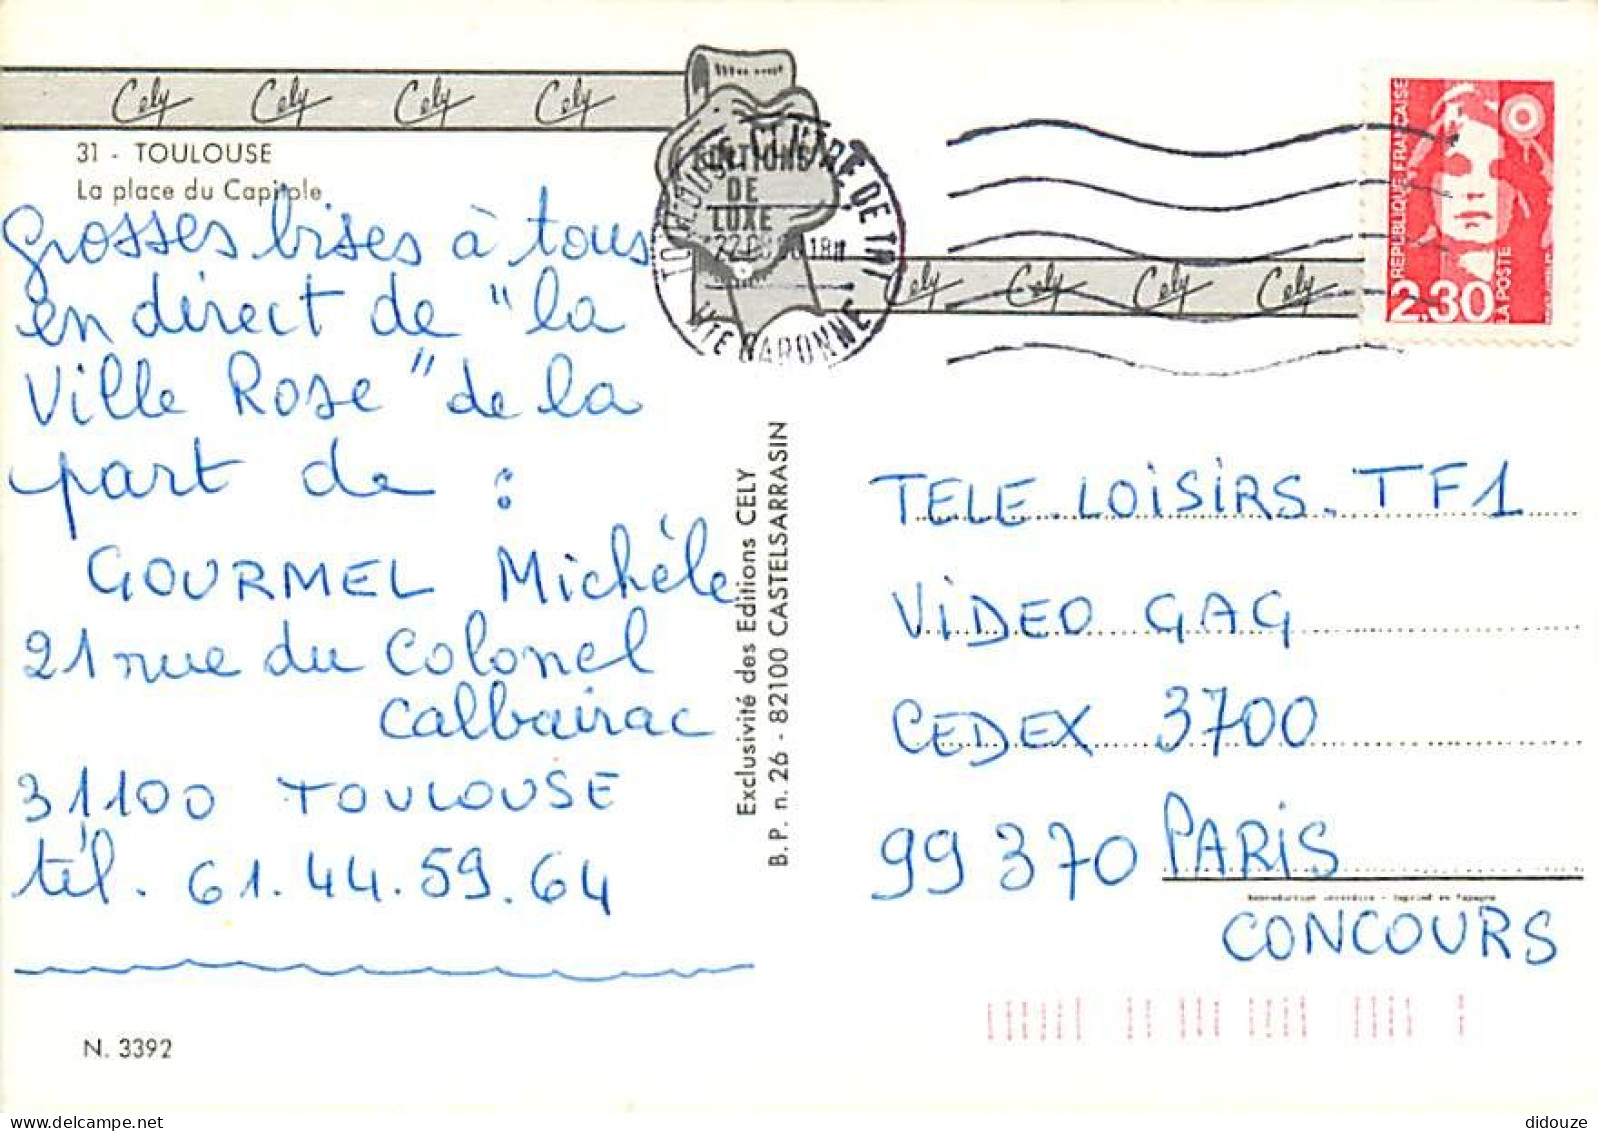 Cely Cely Cely Cely
31 - TOULOUSE
La place du Capitole
EDITIONS
DE
LUXE
TOULOUSE CENTRE DE TRI
18H
HTE GARONNE
Cely Cely Cely Cely
REPUBLIQUE FRANÇAISE
2,30
LA POSTE
Grosses bises à tous
en direct de "la
Ville Rose" de la
part de :
GOURMEL Michèle
21 rue du Colonel
Calbairac
31100 TOULOUSE
tél. 61.44.59.64
N. 3392
Exclusivité des Editions CELY
B.P. n. 26 - 82100 CASTELSARRASIN
TELE.LOISIRS. TF1
VIDEO GAG
CEDEX 3700
99370 PARIS
Reproduction interdite - Imprimé en Espagne
CONCOURS
didouze